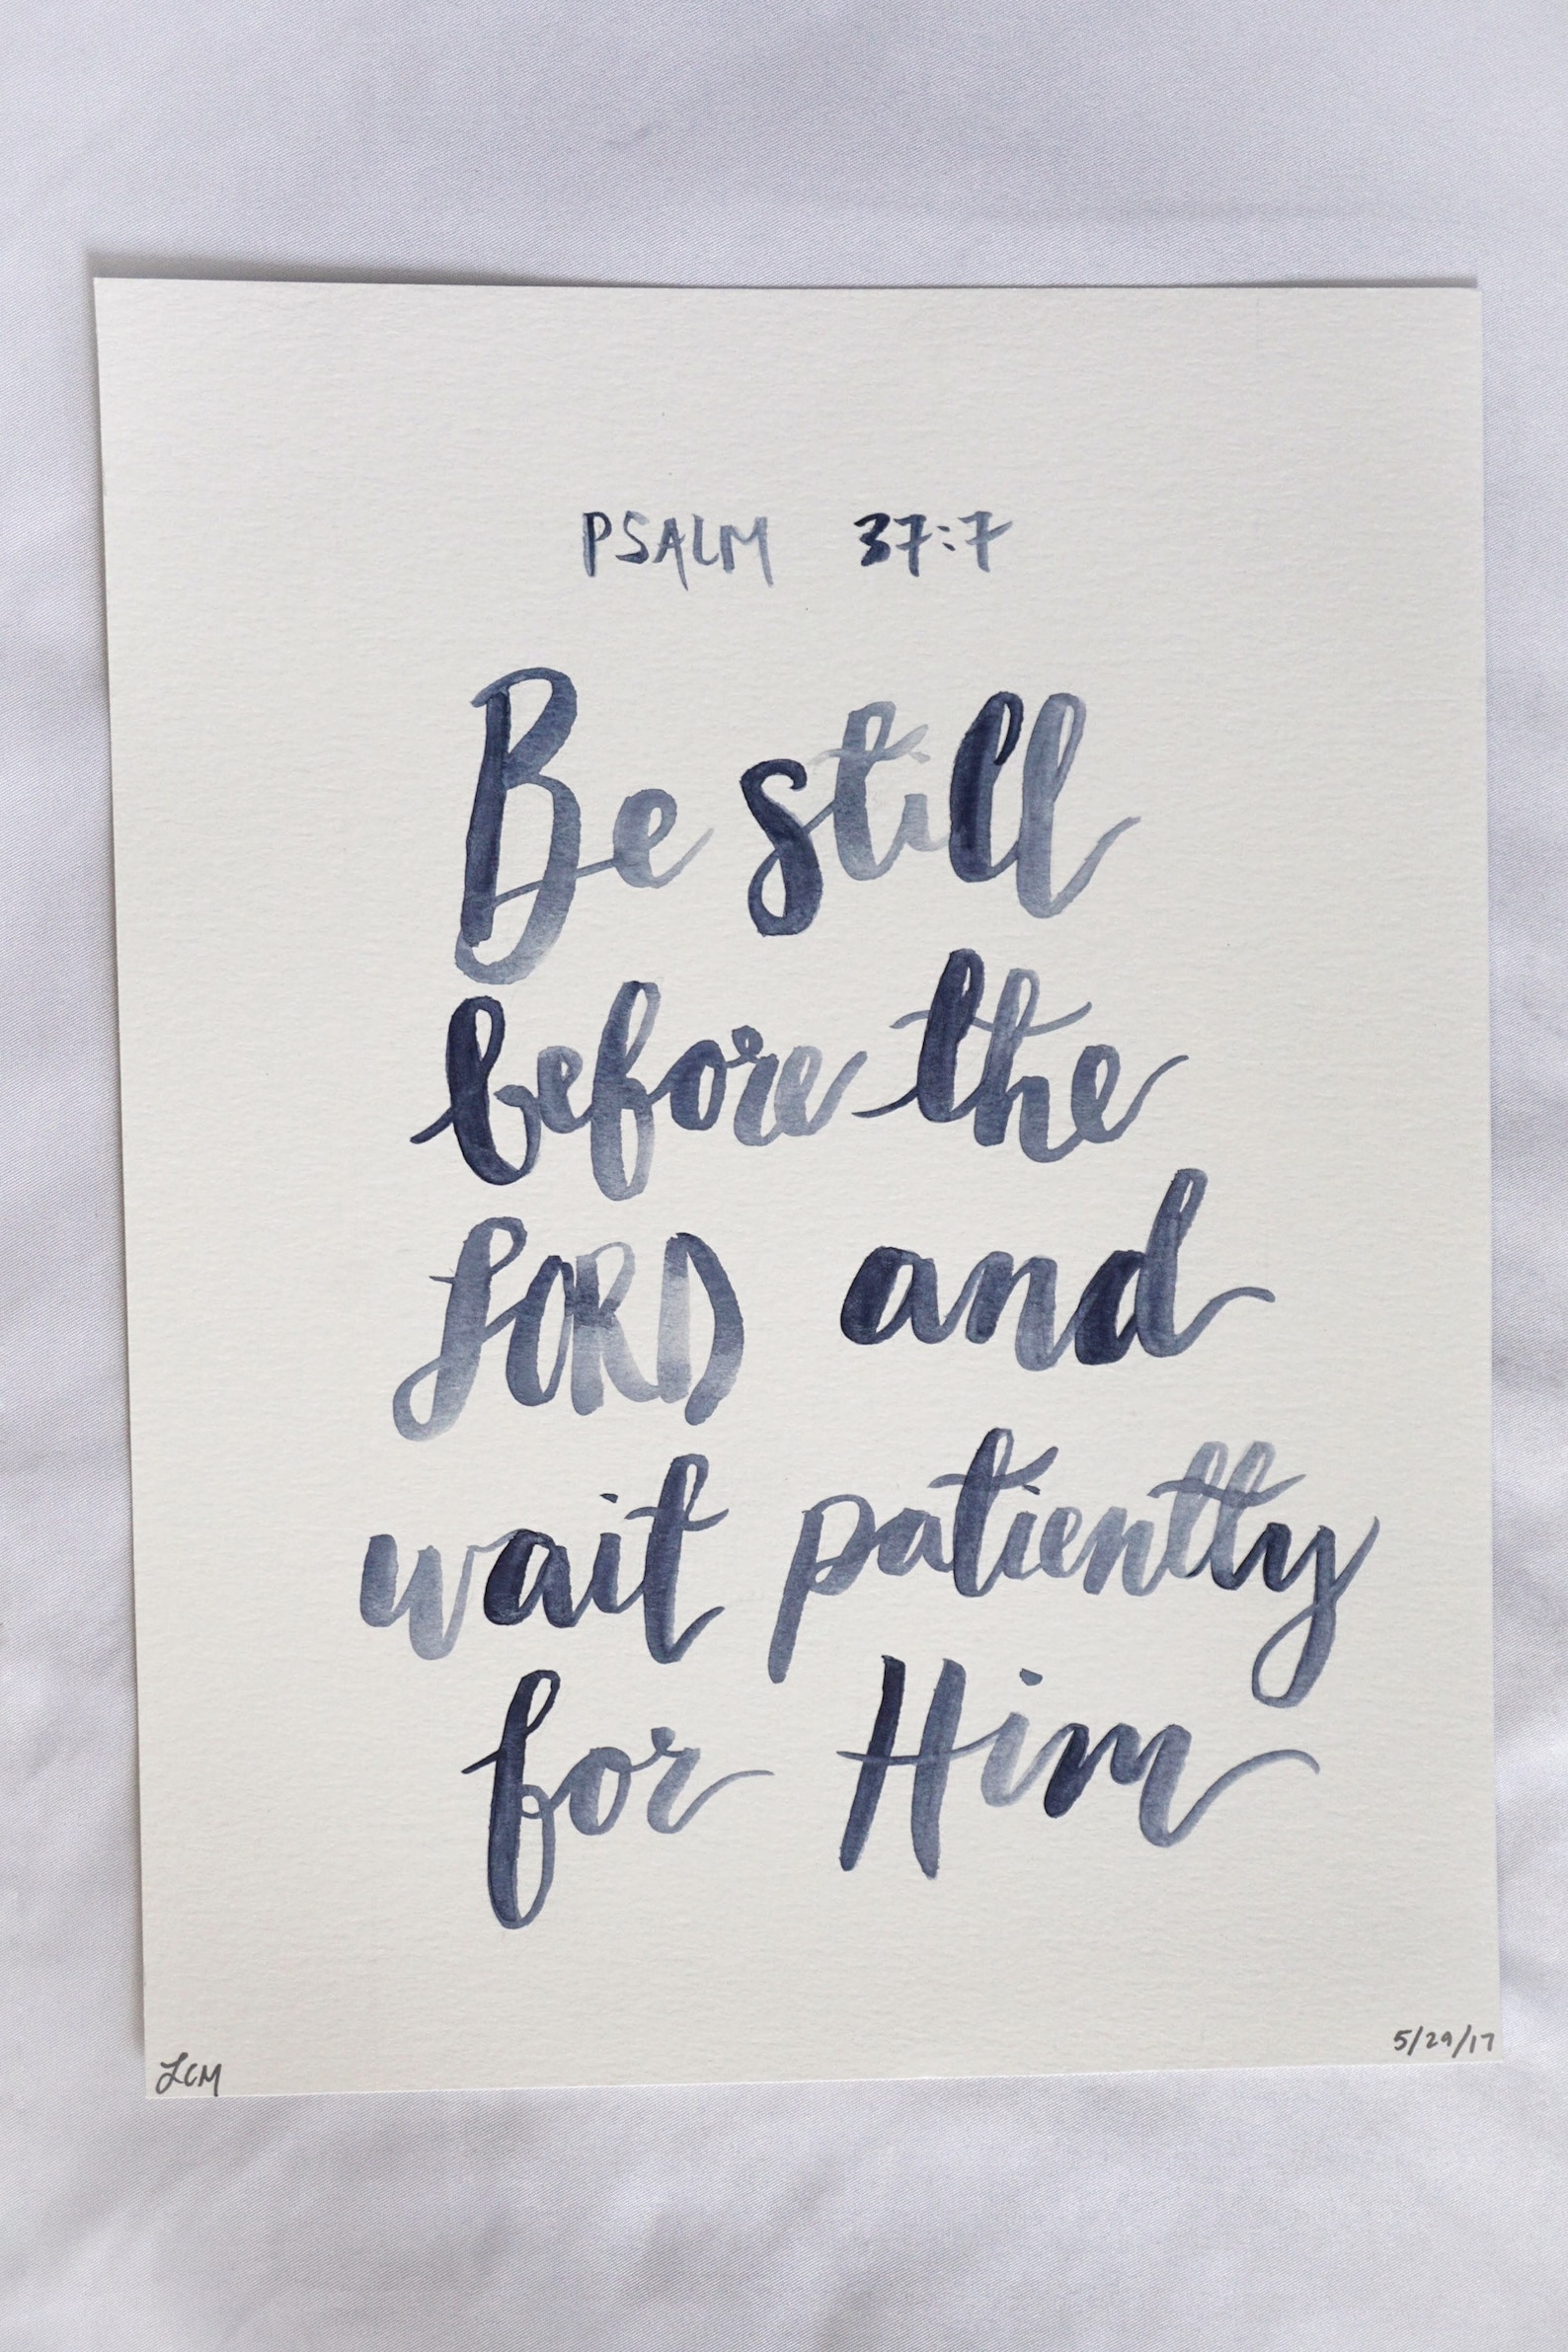 PSALM 37:7
Be still
before the
LORD and
wait patiently
for Him
LCM
5/29/17